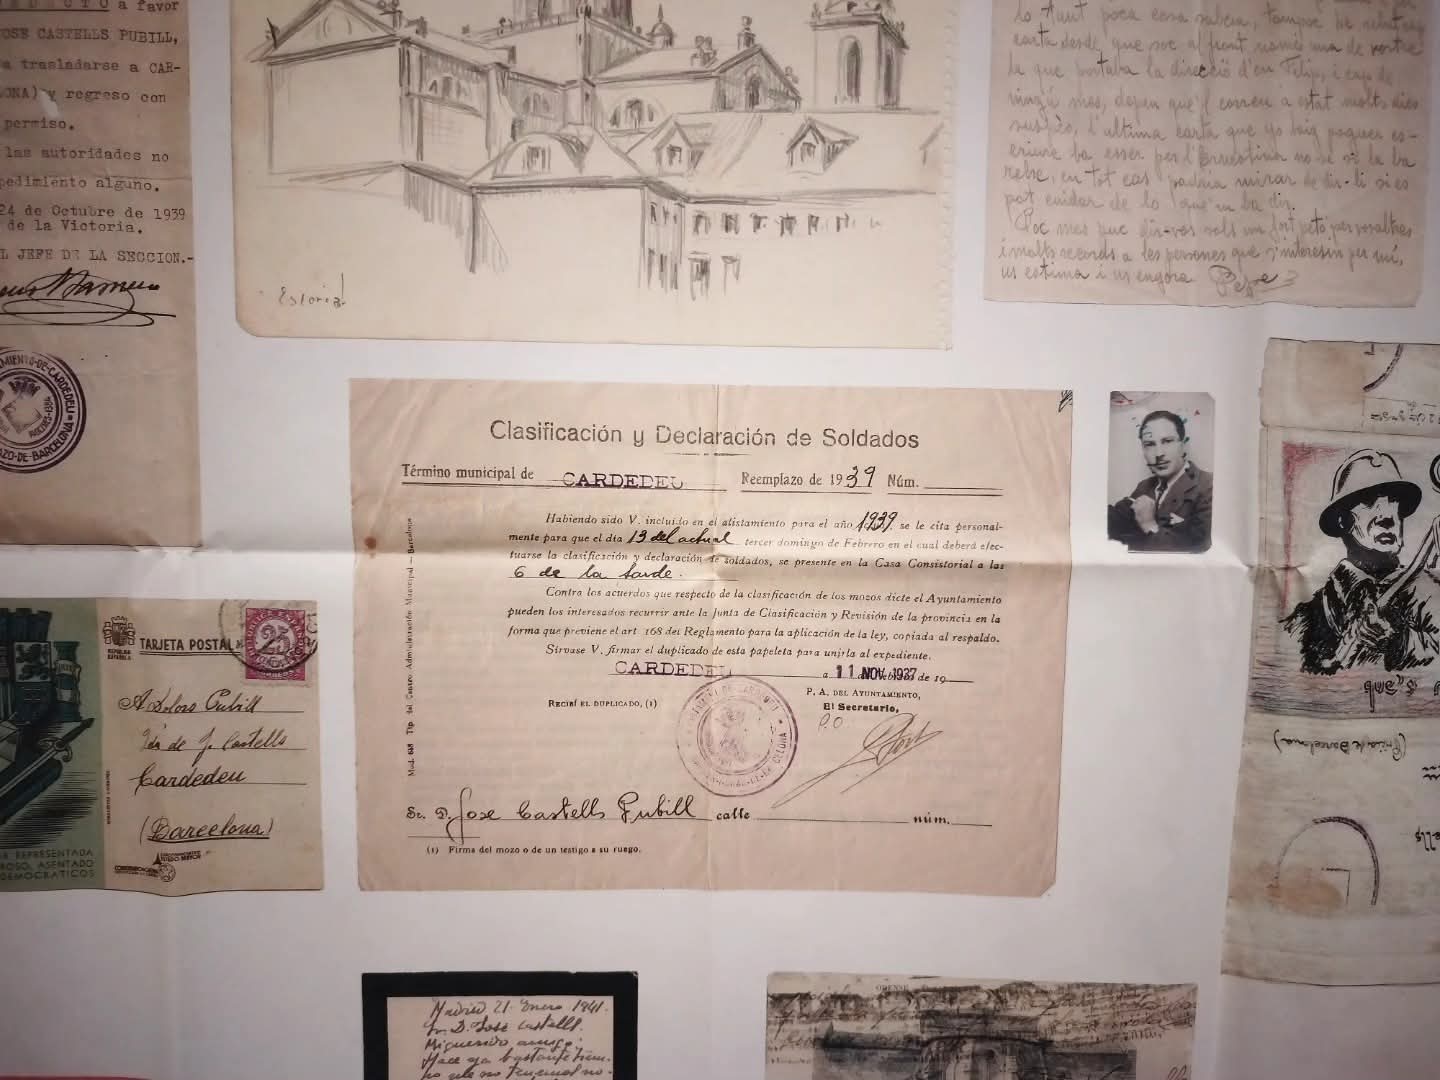 a favor
JOSE CASTELLS PUBILL,
a trasladarse a CAR-
ONA) y regreso con
permiso.
las autoridades no
pedimiento alguno.
24 de Octubre de 1939
de la Victoria.
L JEFE DE LA SECCION.-
MIENTO-DE-CARDEDEU
ZO-DE-BARCELONA
Escorial
poca cosa sabeu, tampoc he rebut
carta desde que soc al front només una de vostre
la que portaba la direcció d'en Felip, i cap de
ningú mes, depen que'l correu a estat molts dies
suspès, l'ultima carta que jo vaig poguer es-
criure ba esser per l'Ernestina no se si la ba
rebre, en tot cas podria mirar de dir-li si es
pot cuidar de lo que'm ba dir.
Poc mes puc dir-vos sols un fort petó per vosaltres
i molts records a les persones que s'interesin per mi,
us estima i us engora Pepe
Clasificación y Declaración de Soldados
Término municipal de CARDEDEU Reemplazo de 1939 Núm.
Habiendo sido V. incluído en el alistamiento para el año 1939 se le cita personal-
mente para que el día 13 del actual tercer domingo de Febrero en el cual deberá efec-
tuarse la clasificación y declaración de soldados, se presente en la Casa Consistorial a las
6 de la tarde.
Contra los acuerdos que respecto de la clasificación de los mozos dicte el Ayuntamiento
pueden los interesados recurrir ante la Junta de Clasificación y Revisión de la provincia en la
forma que previene el art. 168 del Reglamento para la aplicación de la ley, copiada al respaldo.
Sírvase V. firmar el duplicado de esta papeleta para unirla al expediente.
CARDEDEU a 11 NOV. 1937 de 19
RECIBÍ EL DUPLICADO, (1)
P. A. DEL AYUNTAMIENTO,
El Secretario,
P.O
Sr. D. Jose Castells Pubill calle núm.
(1) Firma del mozo o de un testigo a su ruego.
Mod. 638 Tip. del Centro Administración Municipal — Barcelona
REPÚBLICA
ESPAÑOLA
TARJETA POSTAL
25
A Dolors Pubill
Vda de J. Castells
Cardedeu
(Barcelona)
AR REPRESENTADA
ROSO, ASENTADO
DEMOCRATICOS
(Prta de Barcelona)
Madrid 21 Enero 1941.
Sr. D. José Castells.
Mi querido amigo:
Hace ya bastante tiem-
po que no tenemos no-
ORENSE